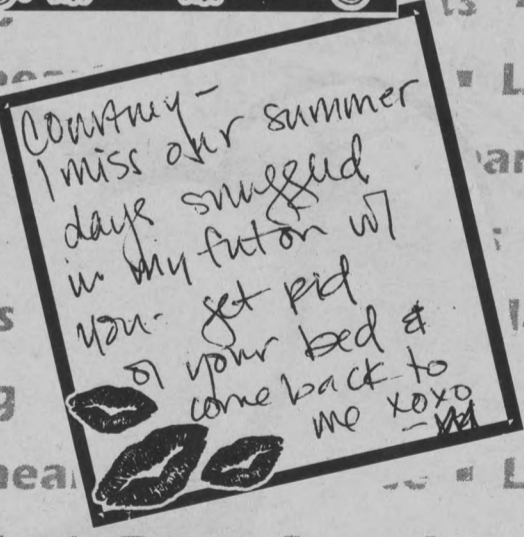 Courtney-
I miss our summer
days snuggled
in my futon w/
you- get rid
of your bed &
come back to
me xoxo